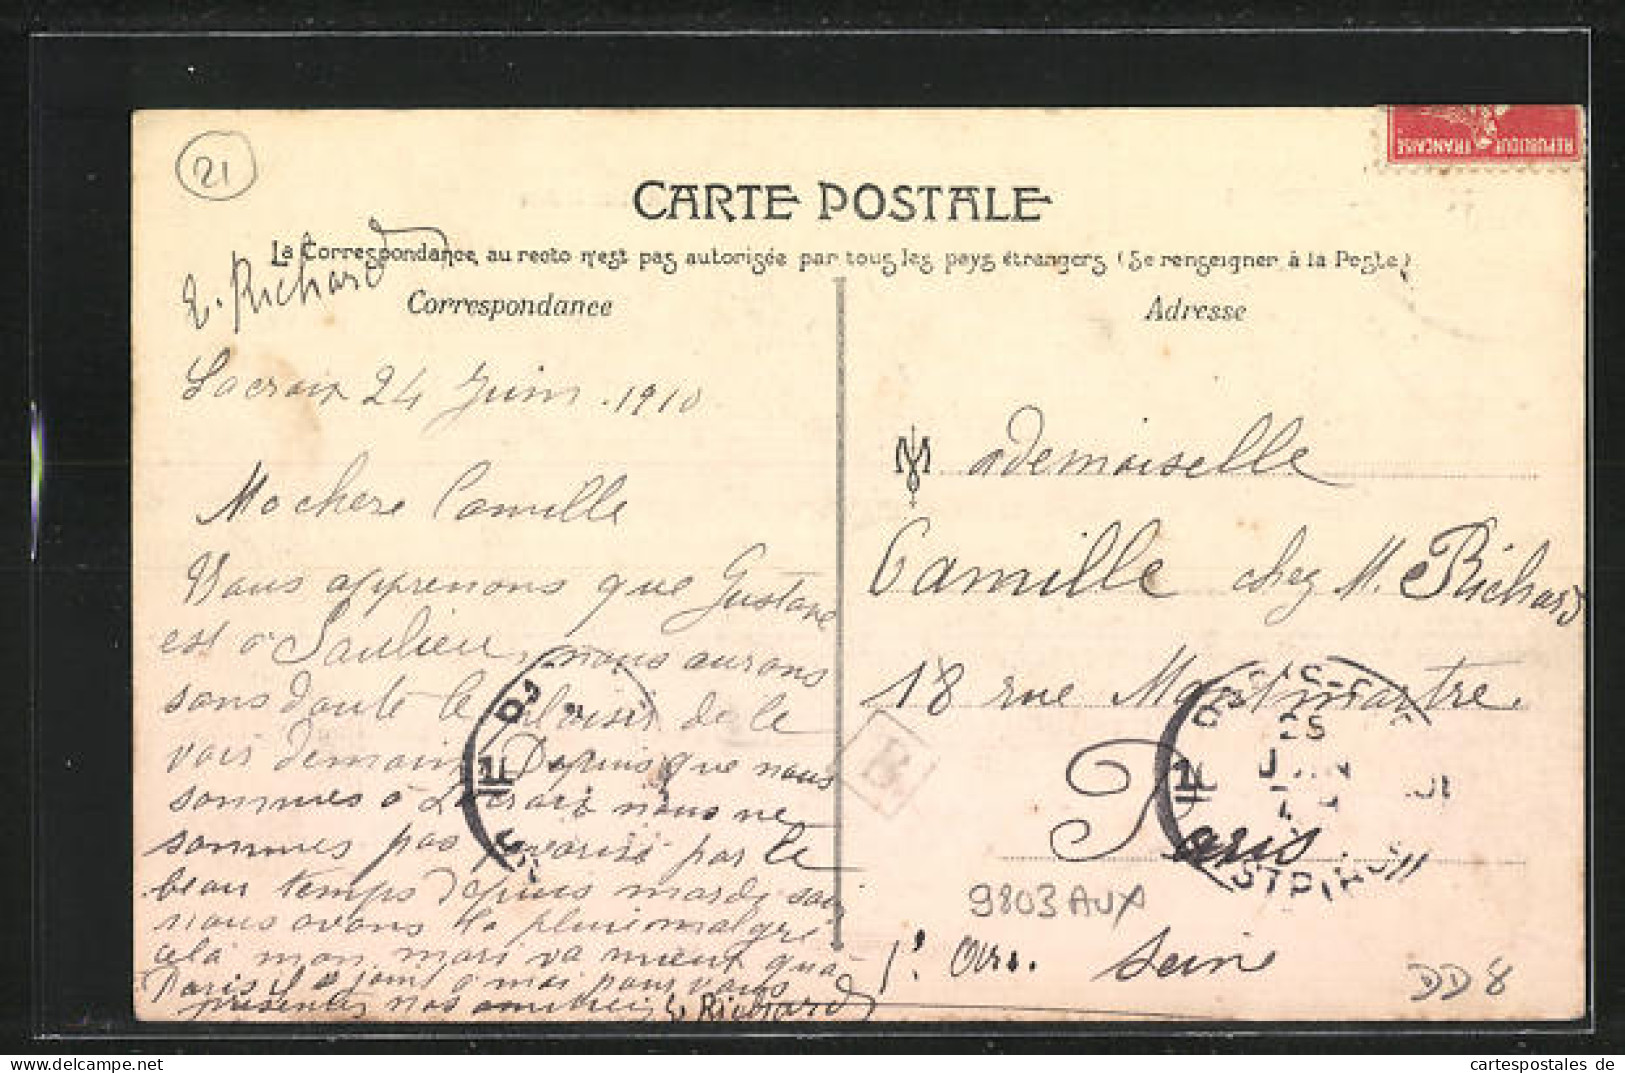 21
REPUBLIQUE FRANÇAISE
CARTE POSTALE
La Correspondance au recto n'est pas autorisée par tous les pays étrangers (Se renseigner à la Poste)
E. Richard
Correspondance
Adresse
Lacroix 24 Juin 1910
Ma chere Camille
Nous apprenons que Gustave
est à Saulieu, nous aurons
sans doute le plaisir de le
voir demain Depuis que nous
sommes à Lacroix nous ne
sommes pas favorisé par le
beau temps depuis mardi soir
nous avons la pluie malgré
cela mon mari va mieux qu'à
Paris il se joint à moi pour vous
présenter nos amitiés E Richard
Mademoiselle
Camille chez M. Richard
18 rue Montmartre
Paris
1r. Arr. Seine
25
JUIN
DISTRIBUTION
9803 AUX
DD 8
cartespostales de